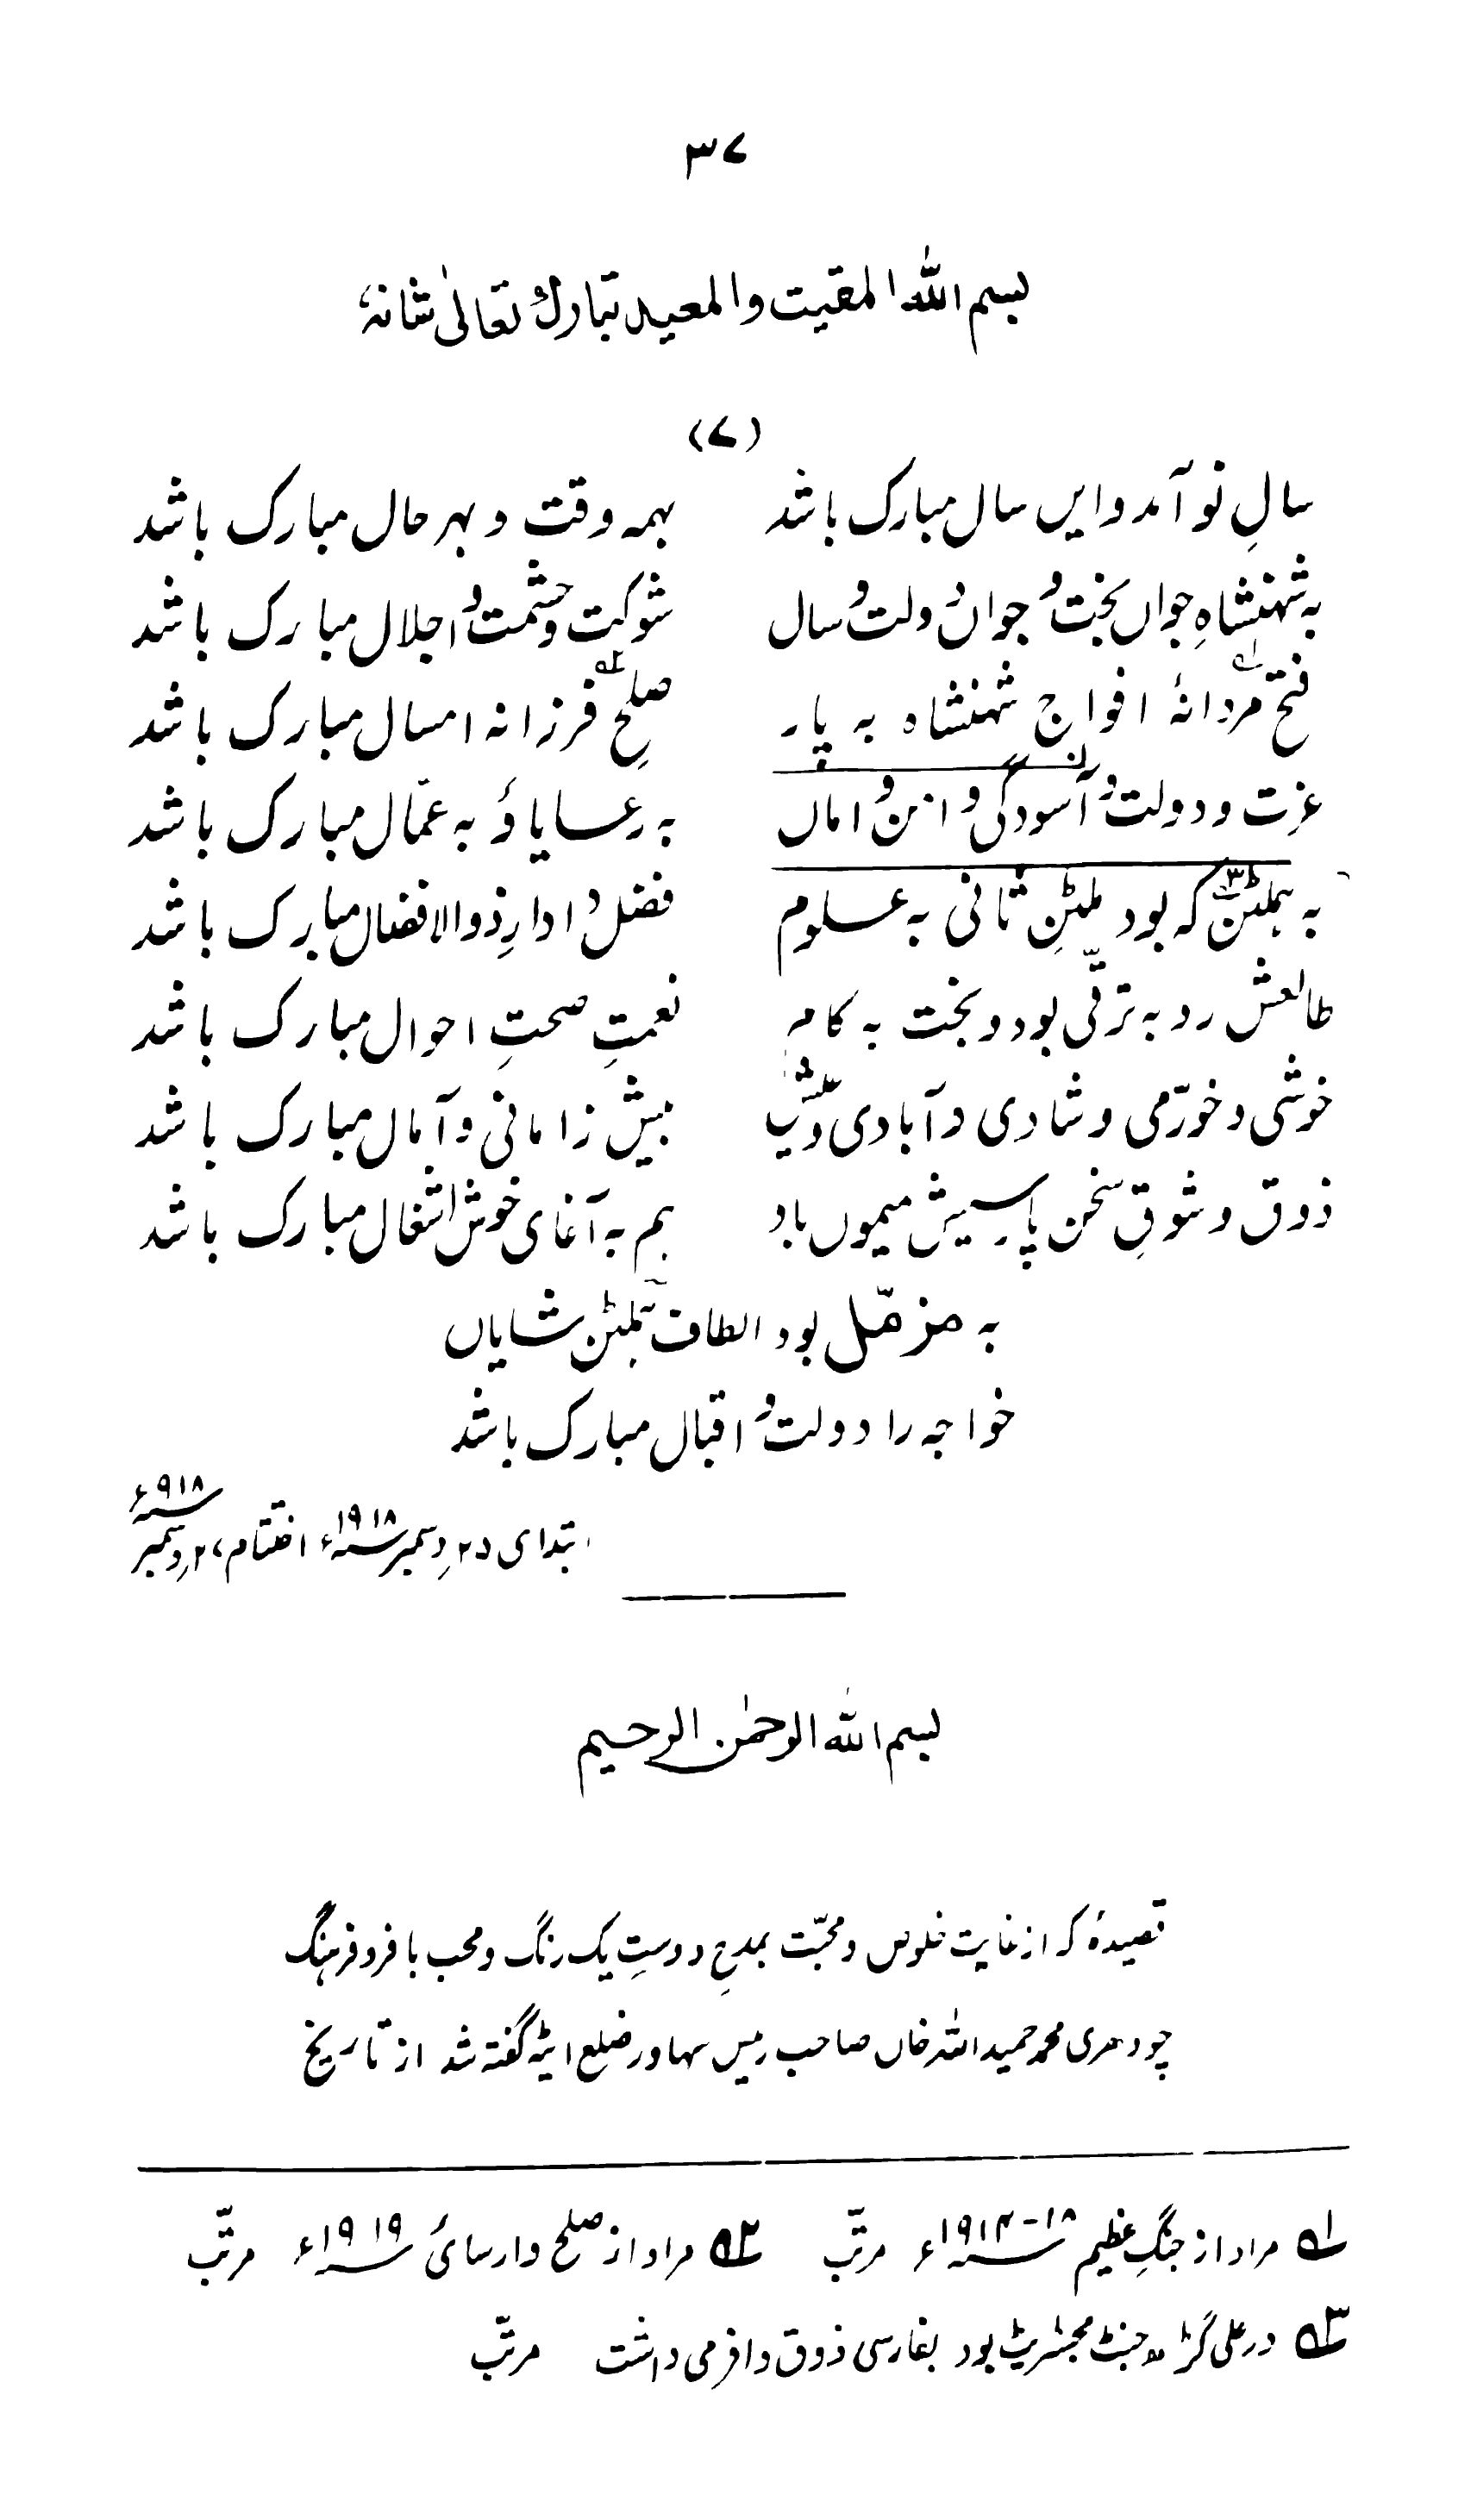 ۳۷
بسم اللہ المقیت والمعید تبارک تعالیٰ شانہٗ
(۷)
سالِ نو آمد و ایں سال مبارک باشد ہمہ وقت و بہر حال مبارک باشد
بہ شہنشاہِ جواں بخت و جواں دولت و سال شوکت و حشمت و اجلال مبارک باشد
فتحِ ؎۱ مردانۂ افواجِ شہنشاہ بہ پار صلحِ ؎۲ فرزانۂ امسال مبارک باشد
عزت و دولت و آسودگی و امن و اماں بہ رعایا و بہ عمّال مبارک باشد
بہ ہملٹن ؎۳ کہ بود ملٹنِ ثانی بہ علوم فضل و ادرارِ ذوالافضال مبارک باشد
طالعش رو بہ ترقّی بود و بخت بہ کام نعمتِ صحتِ احوال مبارک باشد
خوشی و خورّمی و شادی و آبادی و بیش ز امانی و آمال مبارک باشد
ذوق و شوقِ سخن پارسیش میموں باد ہم بہ آغای خوش اشغال مبارک باشد
بہ مزمّل بود الطاف ہملٹن شایاں
خواجہ را دولت و اقبال مبارک باشد
ابتدای دسمبر ۱۹۱۸ء اختتام دسمبر ۹۱۸ء
بسم اللہ الرحمٰن الرحیم
قصیدۂ کہ از غایت خلوص و محبّت بمدحِ دوستِ یک رنگ و محب با فر و فرہنگ
چودھری محمد حمید اللہ خاں صاحب رئیس سہاور ضلع ایٹہ گفتہ شد از تاریخ
؎۱ مراد از جنگِ عظیم ۱۸-۱۹۱۴ء مرتّب ؎۲ مراد از صلح وارسای ۱۹۱۹ء مرتّب
؎۳ در علی گڑھ جنٹ مجسٹریٹ بود بفارسی ذوق وافر می داشت مرتّب